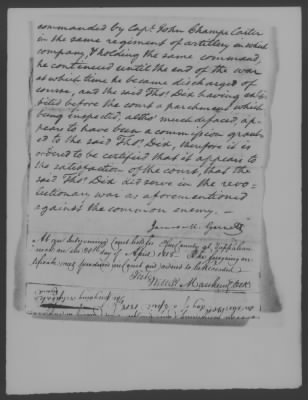 commanded by Capt. John Champe Carter
in the same regiment of artillery in which
company, & holding the same command,
he continued until the end of the war
at which time he became discharged of
course, and the said Thos. Dix having exhi=
bited before the court a parchment which
being inspected, altho' much defaced, ap=
pears to have been a commission grant=
ed to the said Thos. Dix, therefore it is
ordered to be certified that it appears to
the satisfaction of the court, that the
said Thos. Dix did serve in the revo=
lutionary war as aforementioned
against the common enemy. —
James M. Garnett
At a Court held for County at Tappahan
nock on the 20th day of April 1818 — The foregoing cer
tificate was and ordered to be recorded
Teste,